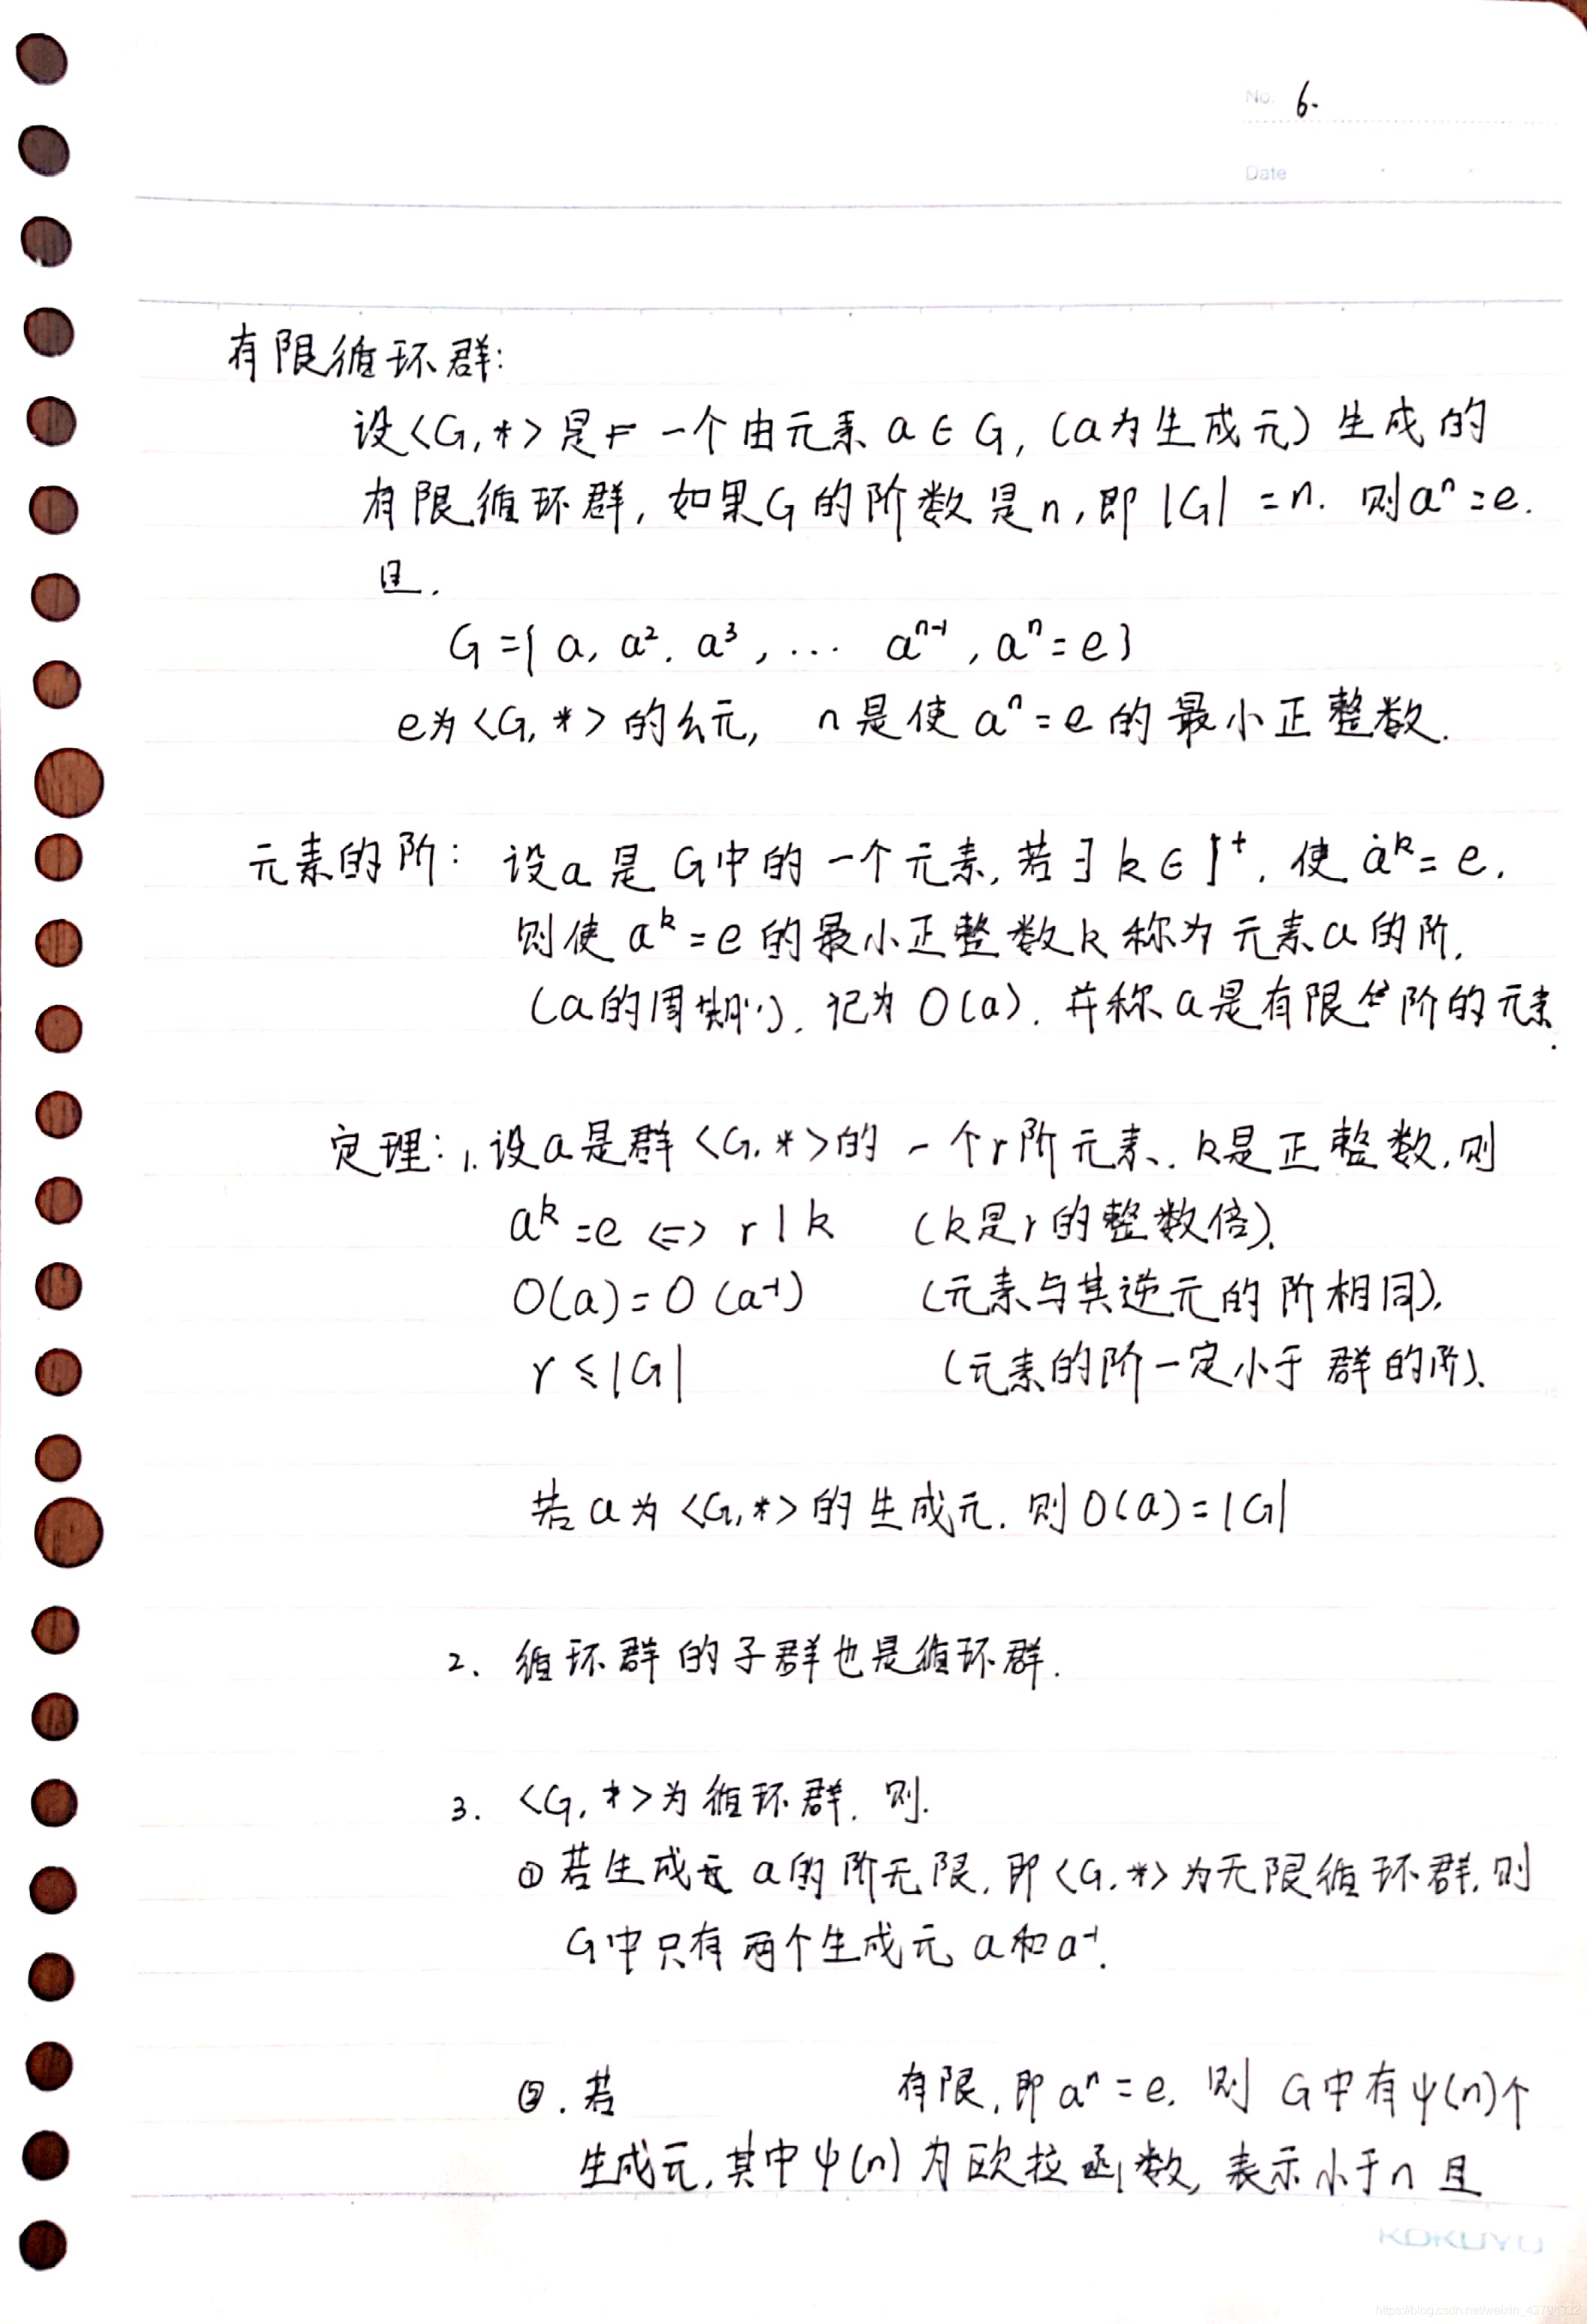 No. 6.
Date
有限循环群:
设<G,*>是一个由元素 a∈G, (a为生成元) 生成的
有限循环群, 如果G的阶数是n, 即 |G| = n. 则aⁿ=e.
且.
G={ a, a². a³, ... aⁿ⁻¹, aⁿ=e}
e为<G,*>的幺元, n是使 aⁿ=e 的最小正整数.
元素的阶: 设a是G中的一个元素, 若∃k∈I⁺, 使 aᵏ=e.
则使 aᵏ=e的最小正整数k称为元素a的阶.
(a的周期). 记为 O(a). 并称a是有限阶的元素.
定理: 1. 设a是群<G,*>的一个r阶元素. k是正整数, 则
aᵏ=e <=> r|k (k是r的整数倍).
O(a)=O(a⁻¹) (元素与其逆元的阶相同).
r≤|G| (元素的阶一定小于群的阶).
若a为<G,*>的生成元. 则O(a)=|G|
2. 循环群的子群也是循环群.
3. <G,*>为循环群. 则.
① 若生成元a的阶无限, 即<G,*>为无限循环群, 则
G中只有两个生成元 a和a⁻¹.
②. 若 有限, 即aⁿ=e. 则 G中有ψ(n)个
生成元, 其中ψ(n)为欧拉函数, 表示小于n且
KOKUYO